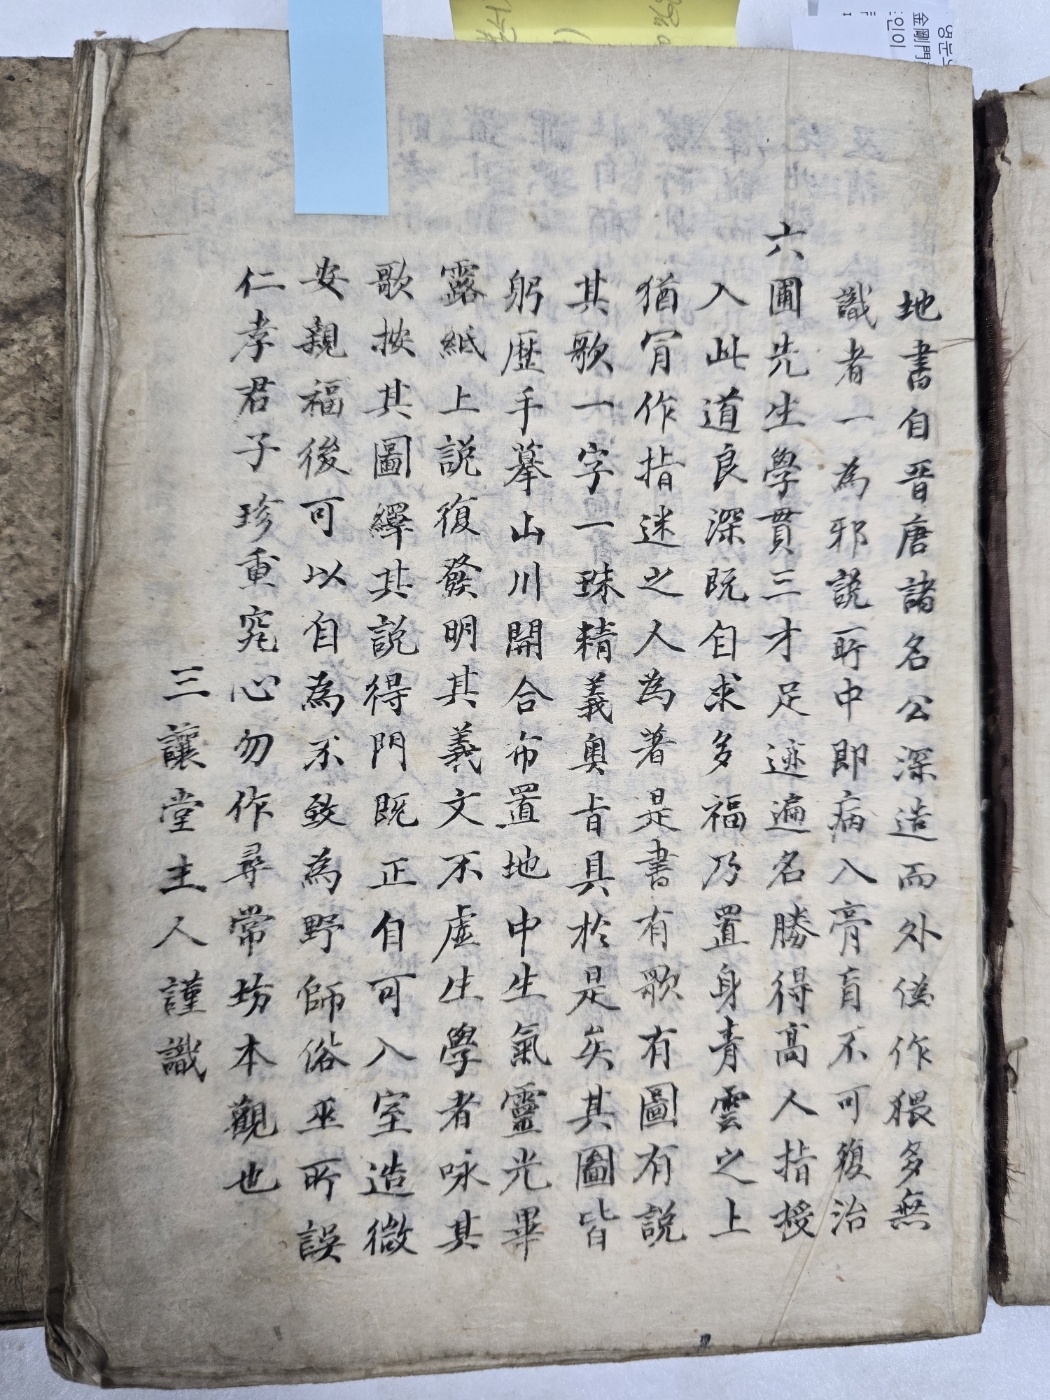 地書自晋唐諸名公深造而外僞作猥多無
識者一為邪説所中即病入膏肓不可復治
六圃先生學貫三才足迹遍名勝得髙人指授
入此道良深既自求多福乃置身青雲之上
猶肎作指迷之人為著是書有歌有圖有説
其歌一字一珠精義奥旨具於是矣其圖皆
躬歴手摹山川開合布置地中生氣靈光畢
露紙上説復發明其義文不虛生學者咏其
歌按其圖繹其説得門既正自可入室造微
安親福後可以自為不致為野師俗巫所誤
仁孝君子珍重究心勿作尋常坊本觀也
三讓堂主人謹識
金剛門